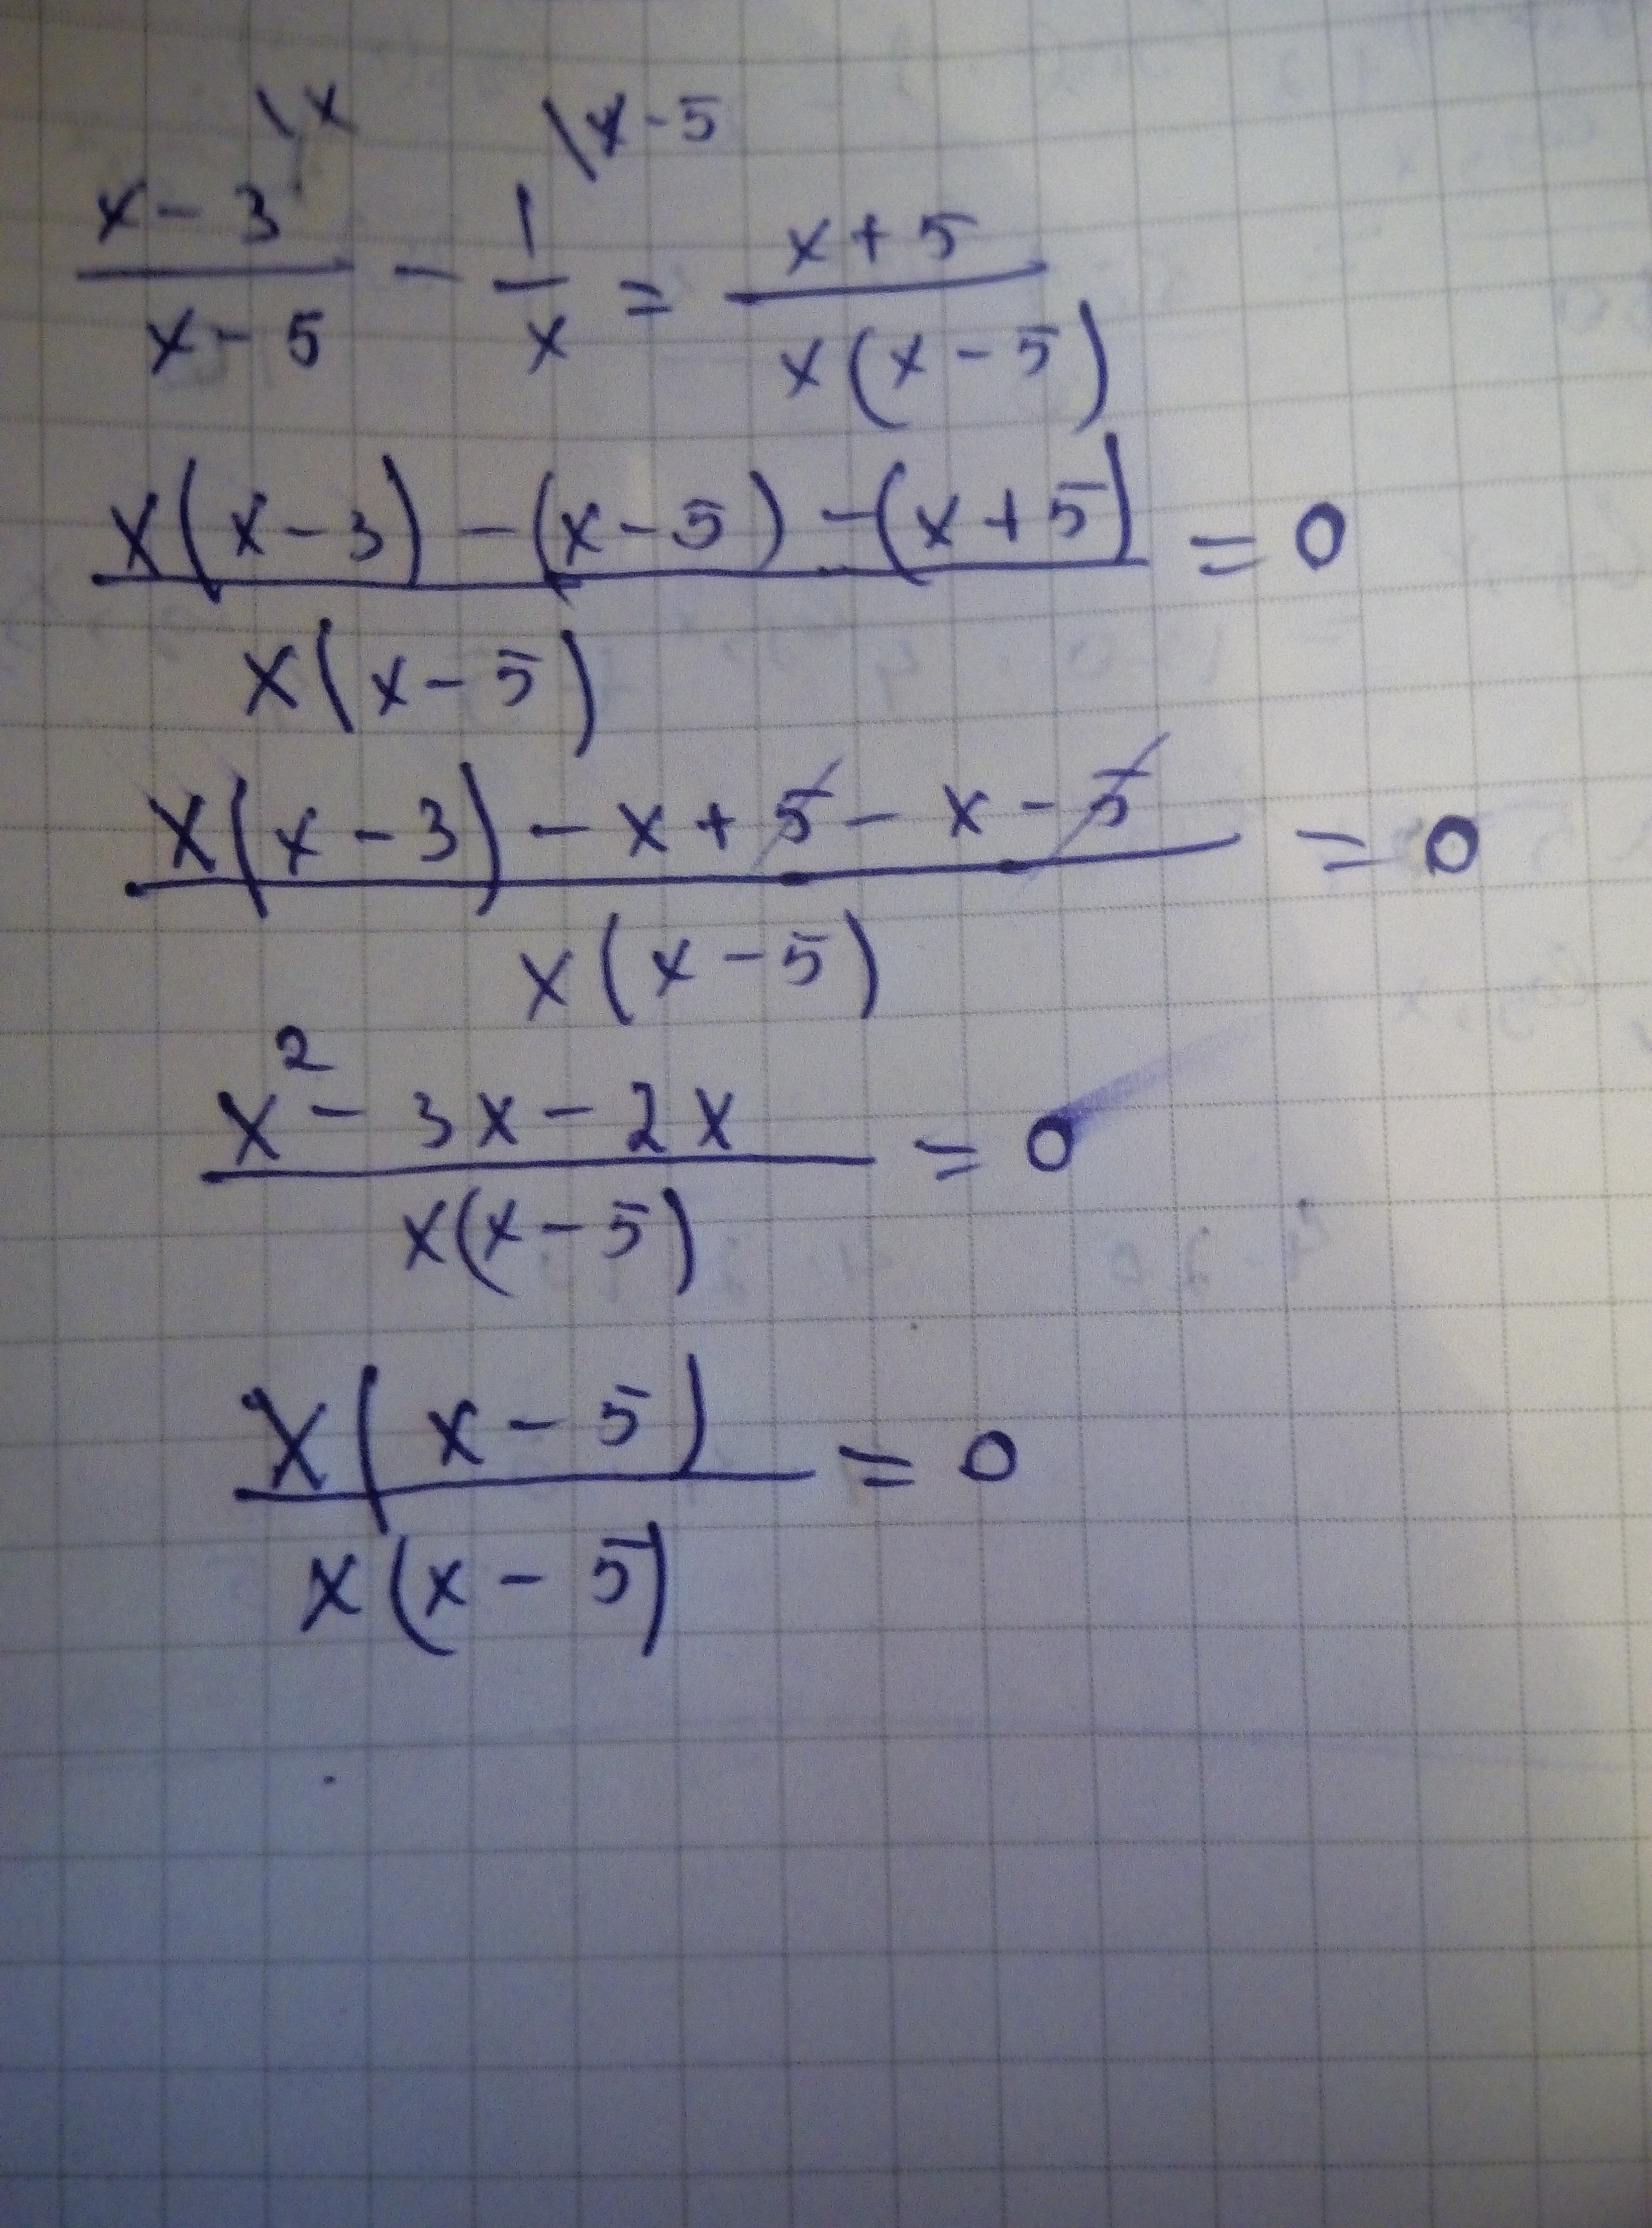 \x \x-5
x-3/x-5 - 1/x = x+5/x(x-5)
x(x-3)-(x-5)-(x+5)/x(x-5) = 0
x(x-3)-x+5-x-5/x(x-5) = 0
x²-3x-2x/x(x-5) = 0
x(x-5)/x(x-5) = 0